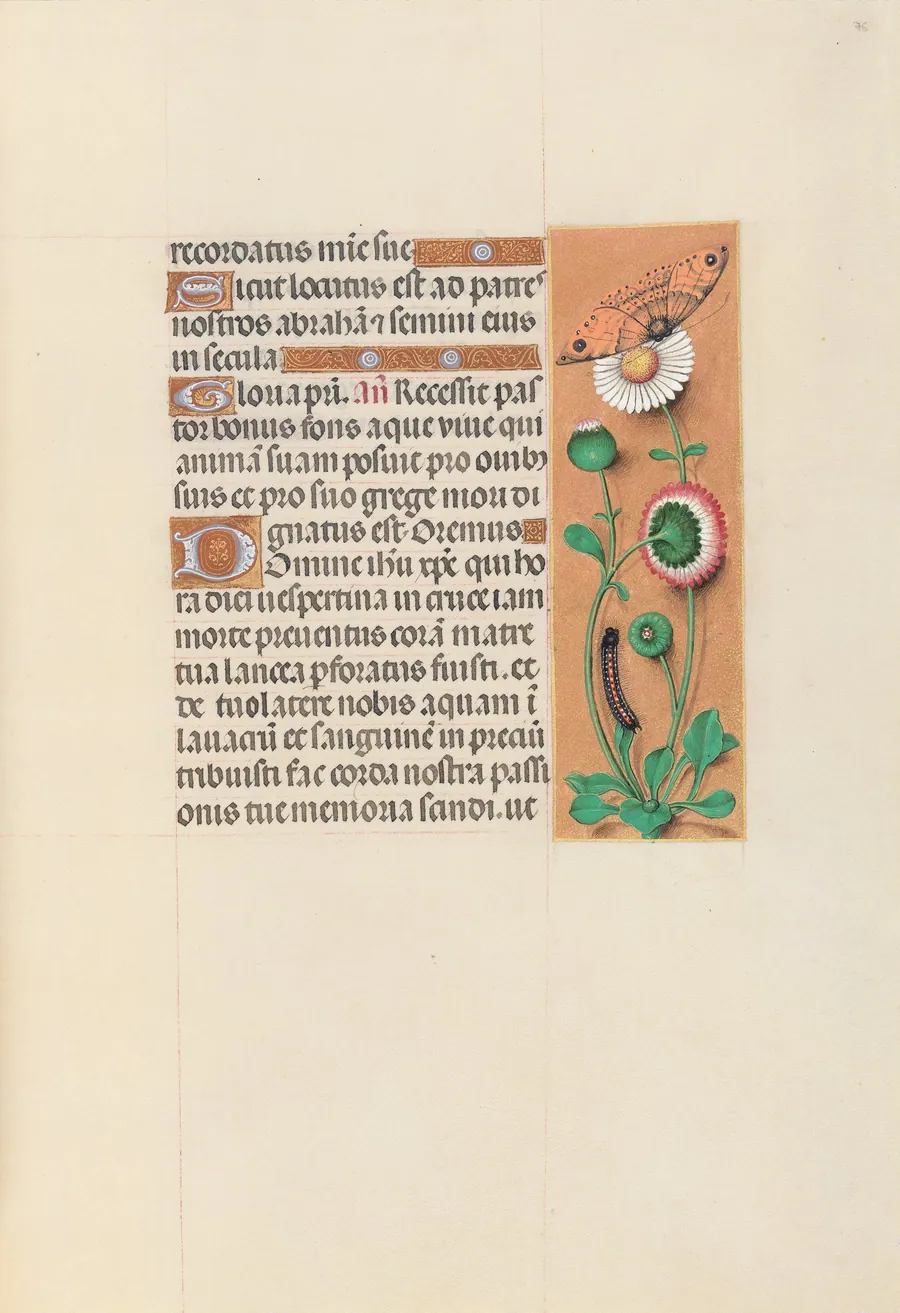 76
recordatus mīe sue
Sicut locutus est ad patres
nostros abrahā ⁊ semini eius
in secula
Gloria pri. Añ Recessit pas
tor bonus fons aque viue qui
animā suam posuit pro ouibꝫ
suis et pro suo grege mori di
gnatus est. Oremus
Domine ihū xp̄e qui ho
ra diei uespertina in cruce iam
morte preuentus corā matre
tua lancea pforatus fuisti. et
de tuo latere nobis aquam ī
lauacrū et sanguinē in preciū
tribuisti fac corda nostra passi
onis tue memoria scindi. ut